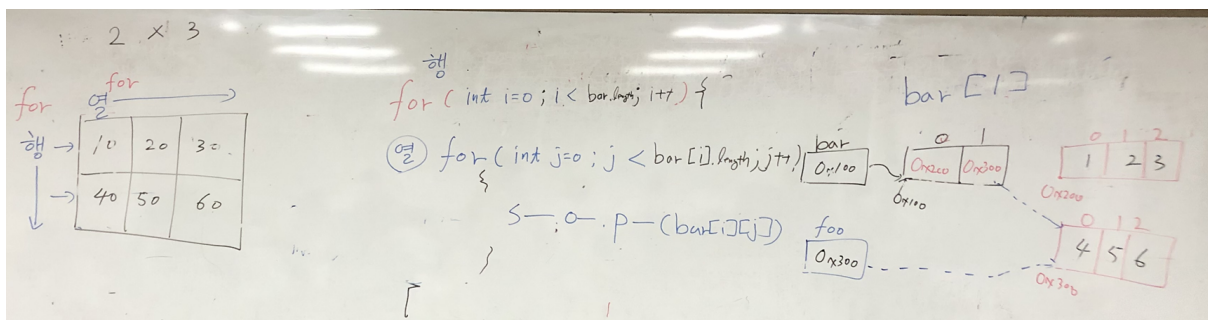 2 x 3
for
for
열
행
10 20 30
40 50 60
행
for ( int i=0 ; i < bar.length; i++ ) {
열 for ( int j=0 ; j < bar[i].length; j++)
{
S—.o—.p—(bar[i][j])
}
bar [1]
bar
0x100
0 1
0x200 0x300
0x100
0 1 2
1 2 3
0x200
foo
0x300
0 1 2
4 5 6
0x300